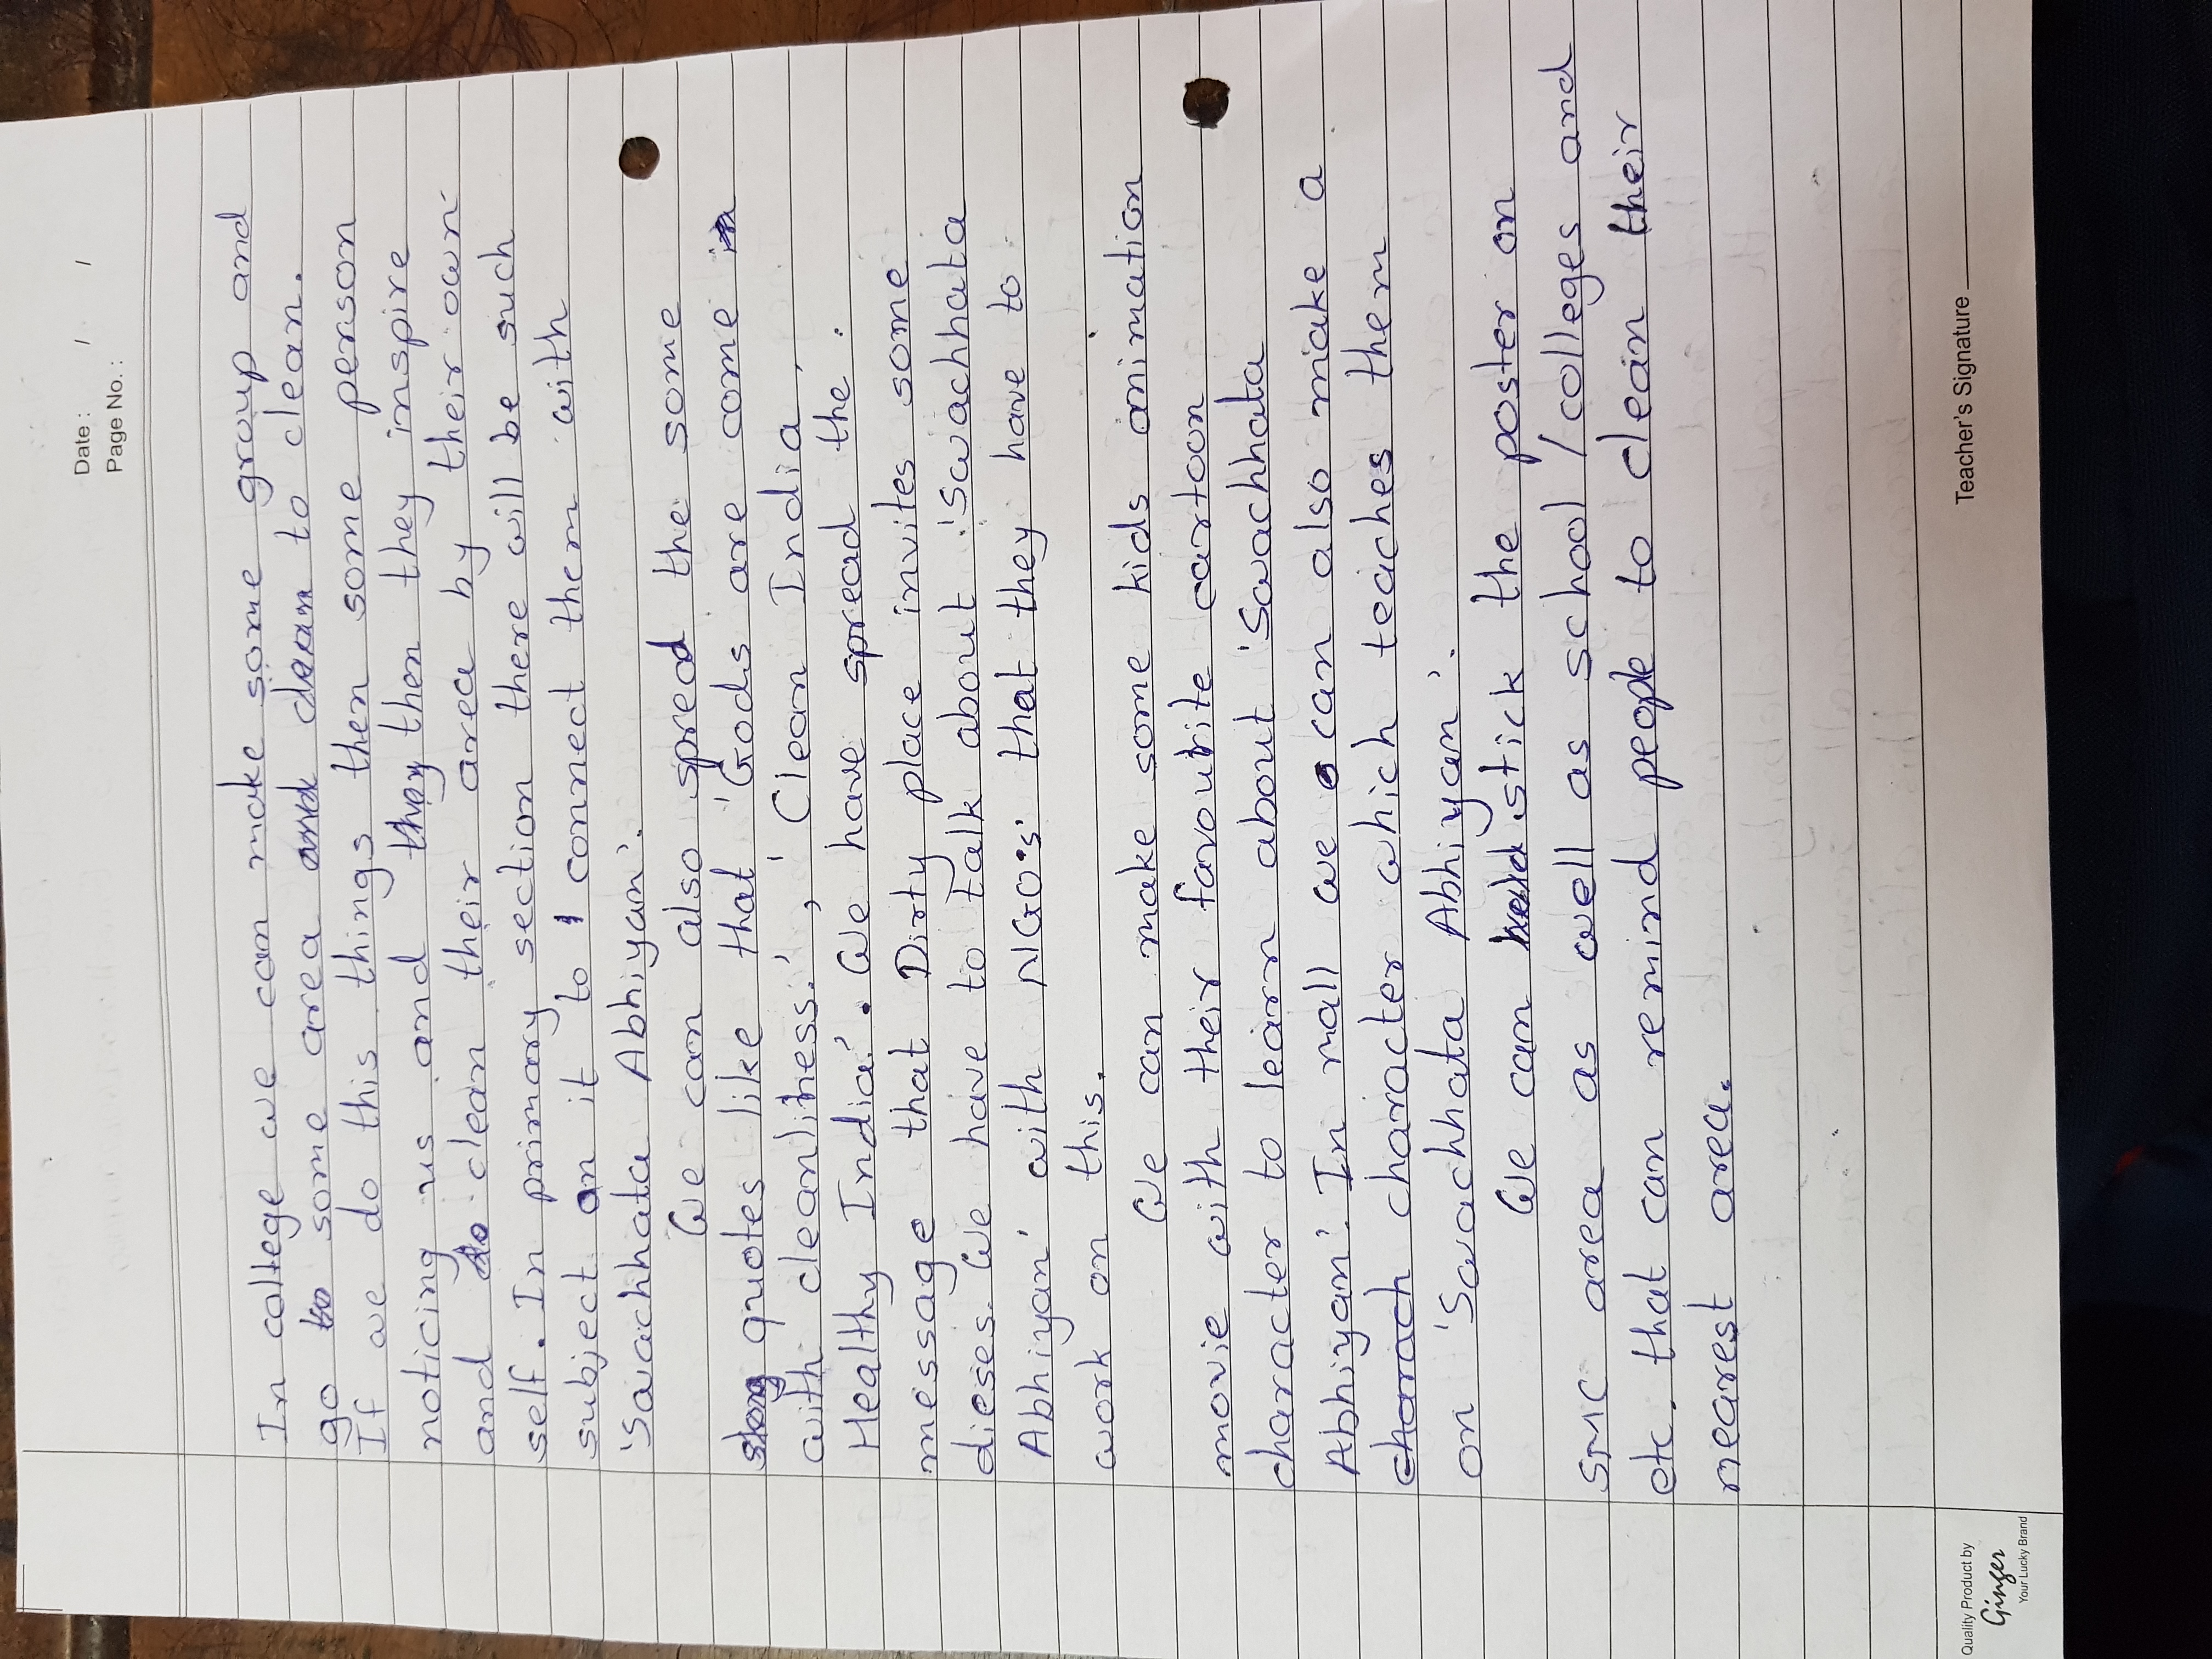 Date : / /
Page No. :
In college we can make some group and
go to some area and clean to clean.
If we do this things then some person
noticing us and they then they inspire
and do clean their area by their own
self. In primary section there will be such
subject on it to connect them with
'Swachhata Abhiyan'.
We can also spred the some
slong quotes like that 'Gods are come in
with cleanliness.', 'Clean India,
Healthy India'. We have spread the
message that Dirty place invites some
dieses. We have to talk about 'Swachhata
Abhiyan' with NGO's' that they have to
work on this.
We can make some kids animation
movie with their favourite cartoon
character to learn about 'Swachhata
Abhiyan'. In mall we can also make a
charach character which teaches them
on 'Swachhata Abhiyan'.
We can stick the poster on
SMC area as well as school / colleges and
etc. that can remind people to clean their
nearest area.
Teacher's Signature
Quality Product by
Ginger
Your Lucky Brand